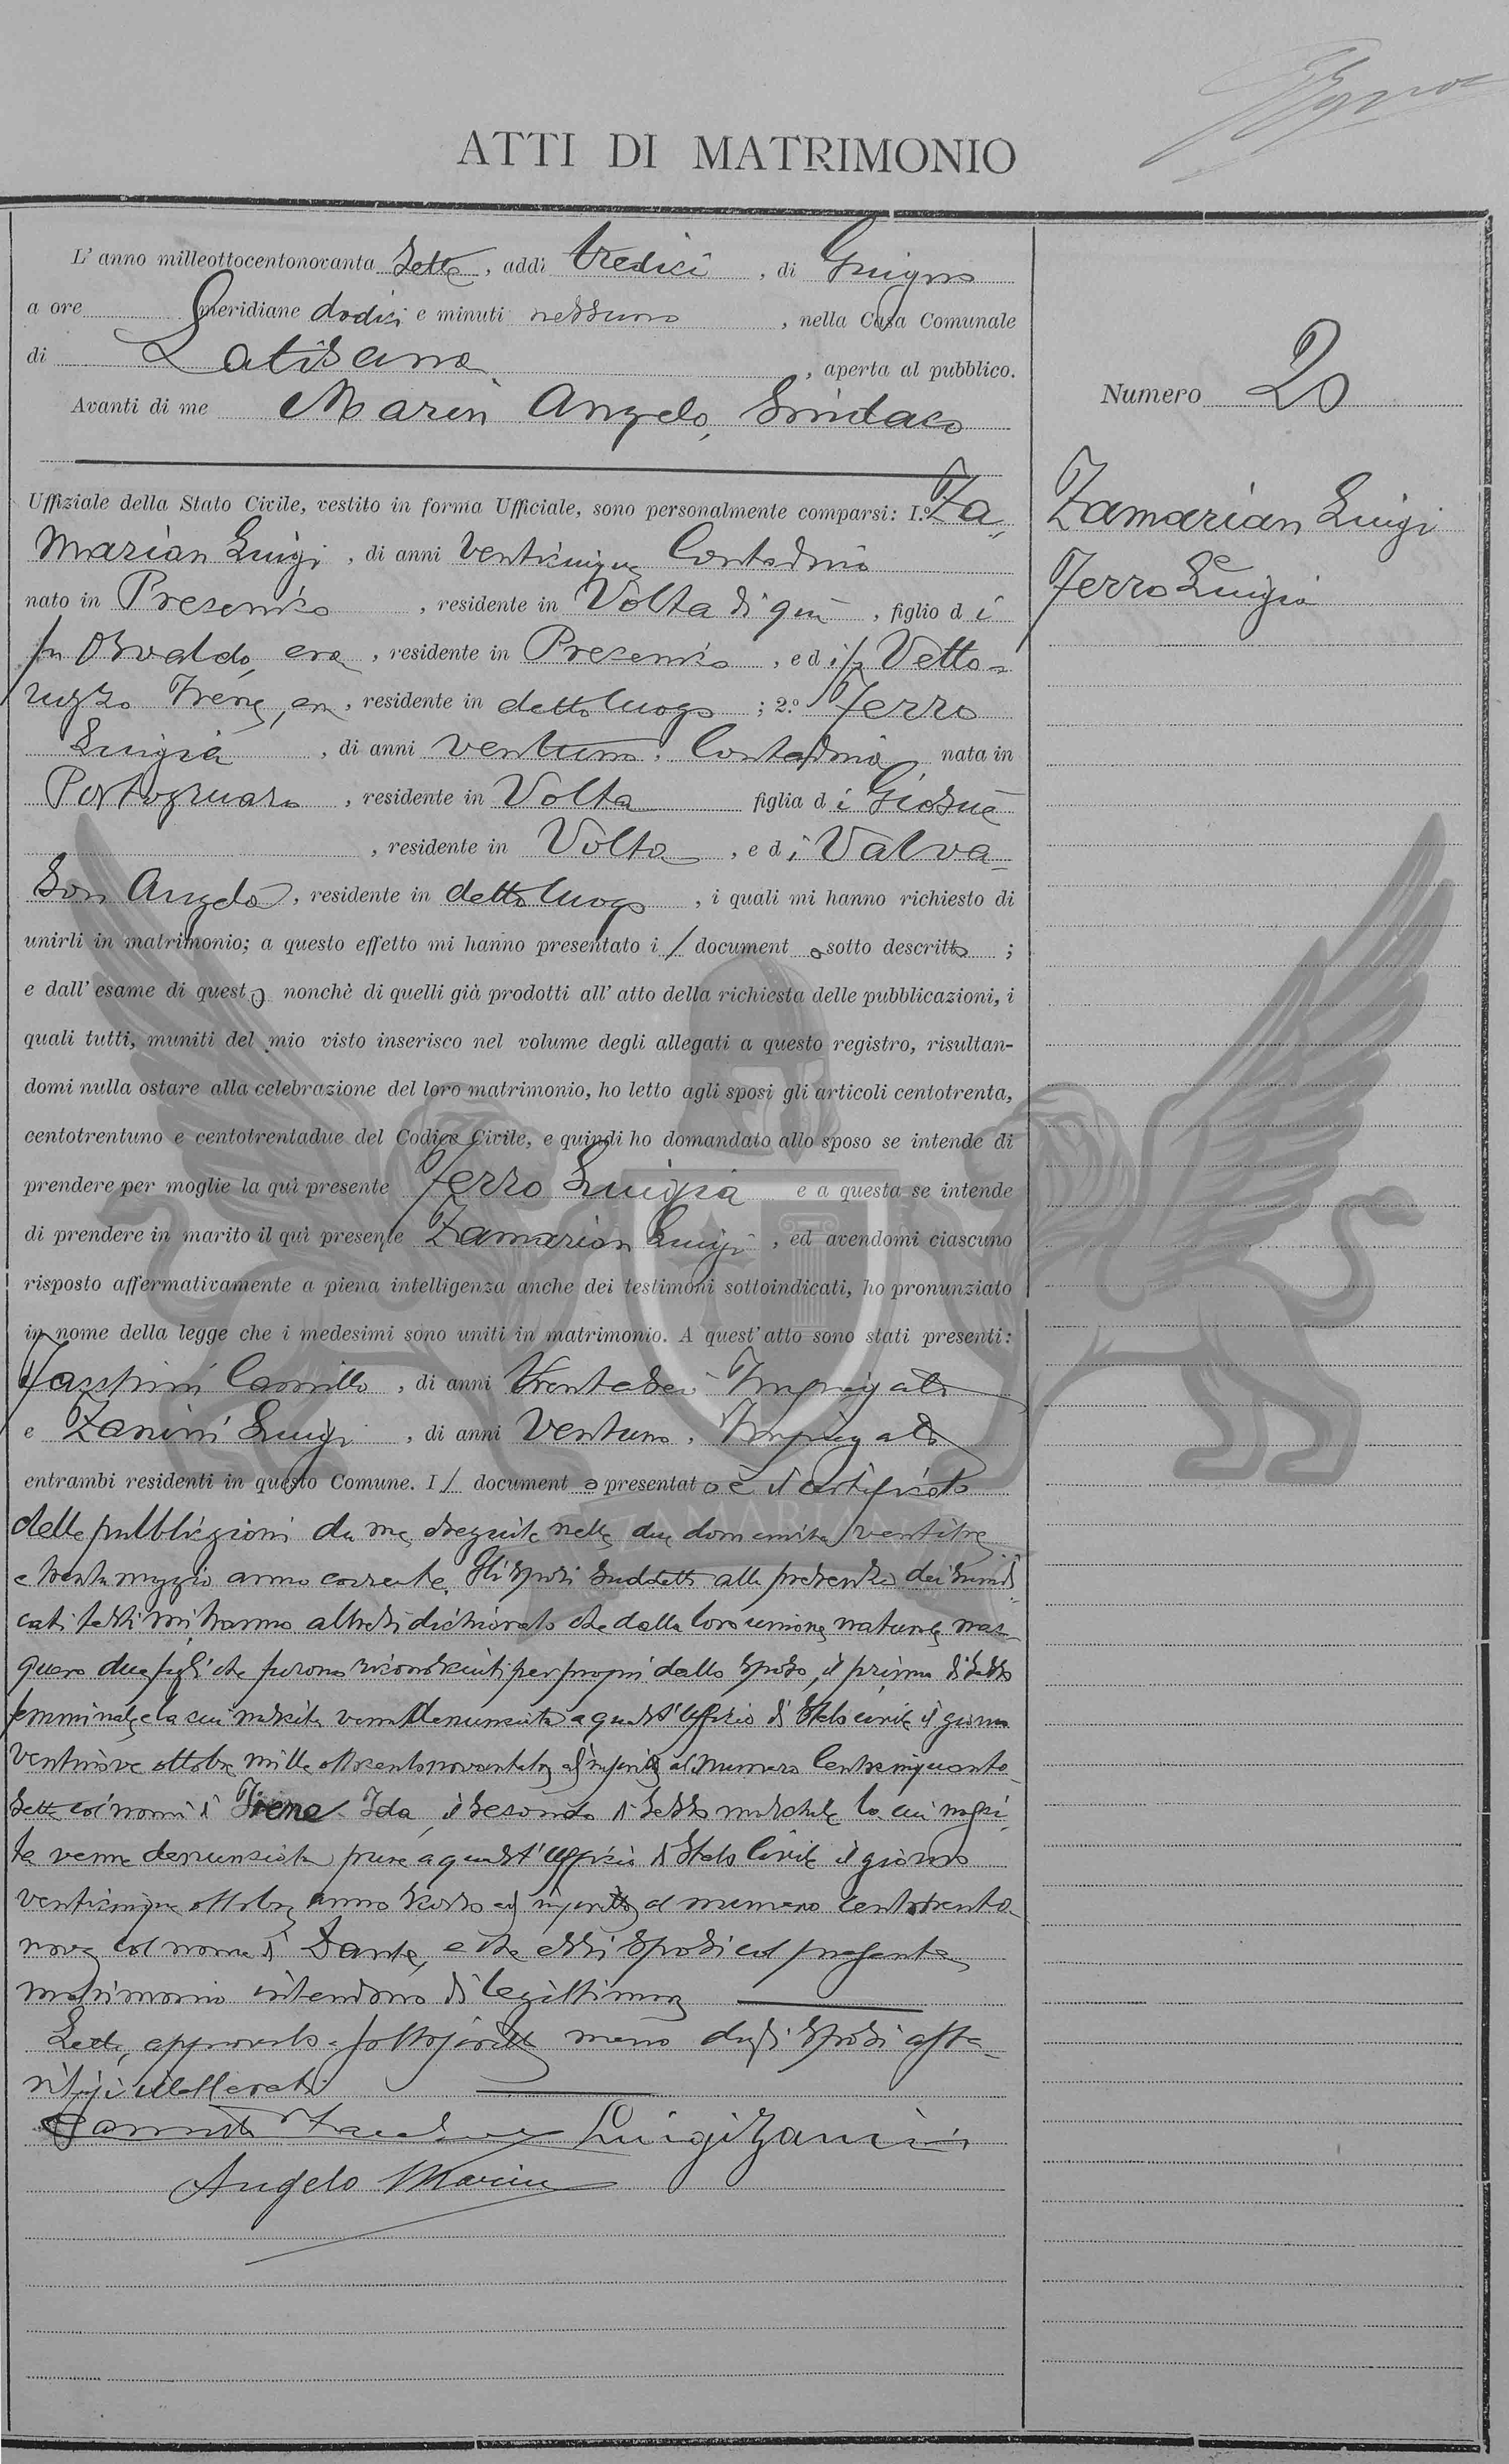 ATTI DI MATRIMONIO
L' anno milleottocentonovanta Sette, addì tredici, di Giugno
a ore meridiane dodici e minuti nessuno, nella Casa Comunale
di Latisana, aperta al pubblico.
Avanti di me Marin Angelo, Sindaco
Numero 20
Uffiziale della Stato Civile, vestito in forma Ufficiale, sono personalmente comparsi: I.° Za-
marian Luigi, di anni venticinque Contadino
Zamarian Luigi
e
Ferro Luigia
nato in Presenico, residente in Volta di qui, figlio di
fu Osvaldo, era, residente in Presenico, ed i fu Vetto-
ruzzo Irene, era, residente in detto luogo; 2.° Ferro
Luigia, di anni ventuno, Contadina, nata in
Portogruaro, residente in Volta figlia di Giosuè
, residente in Volta, e di Valva-
son Angela, residente in detto luogo, i quali mi hanno richiesto di
unirli in matrimonio; a questo effetto mi hanno presentato i/ documento sotto descritto;
e dall' esame di questo nonchè di quelli già prodotti all' atto della richiesta delle pubblicazioni, i
quali tutti, muniti del mio visto inserisco nel volume degli allegati a questo registro, risultan-
domi nulla ostare alla celebrazione del loro matrimonio, ho letto agli sposi gli articoli centotrenta,
centotrentuno e centotrentadue del Codice Civile, e quindi ho domandato allo sposo se intende di
prendere per moglie la quì presente Ferro Luigia e a questa se intende
di prendere in marito il quì presente Zamarian Luigi, ed avendomi ciascuno
risposto affermativamente a piena intelligenza anche dei testimoni sottoindicati, ho pronunziato
in nome della legge che i medesimi sono uniti in matrimonio. A quest' atto sono stati presenti:
Camillo, di anni trentasei Impiegato
e Zanini Luigi, di anni ventuno, Impiegato
entrambi residenti in questo Comune. I/ documento presentato è il certificato
delle pubblicazioni da me eseguite nelle due domeniche ventitre
e trenta maggio anno corrente. Gli sposi suddetti alla presenza dei
testi mi hanno altresì dichiarato che dalla loro unione naturale nac-
quero due figli che furono riconosciuti per propri dallo sposo, il primo di sesso
femminile la cui nascita venne denunciata a quest'Uffizio di Stato civile il giorno
ventinove ottobre mille ottocentonovanta ed inserita al Numero Centocinquanta-
sette coi nomi di Irene Ida, il secondo di sesso maschile la cui nasci-
ta venne denunciata pure a quest'Uffizio di Stato Civile il giorno
venticinque ottobre anno scorso ed inserita al numero Centotrenta-
nove col nome di Dante, e che essi sposi col presente
matrimonio intendono di legittimare
Letto, approvato e sottoscritto meno dagli sposi
illetterati
Luigi Zanini
Angelo Marin